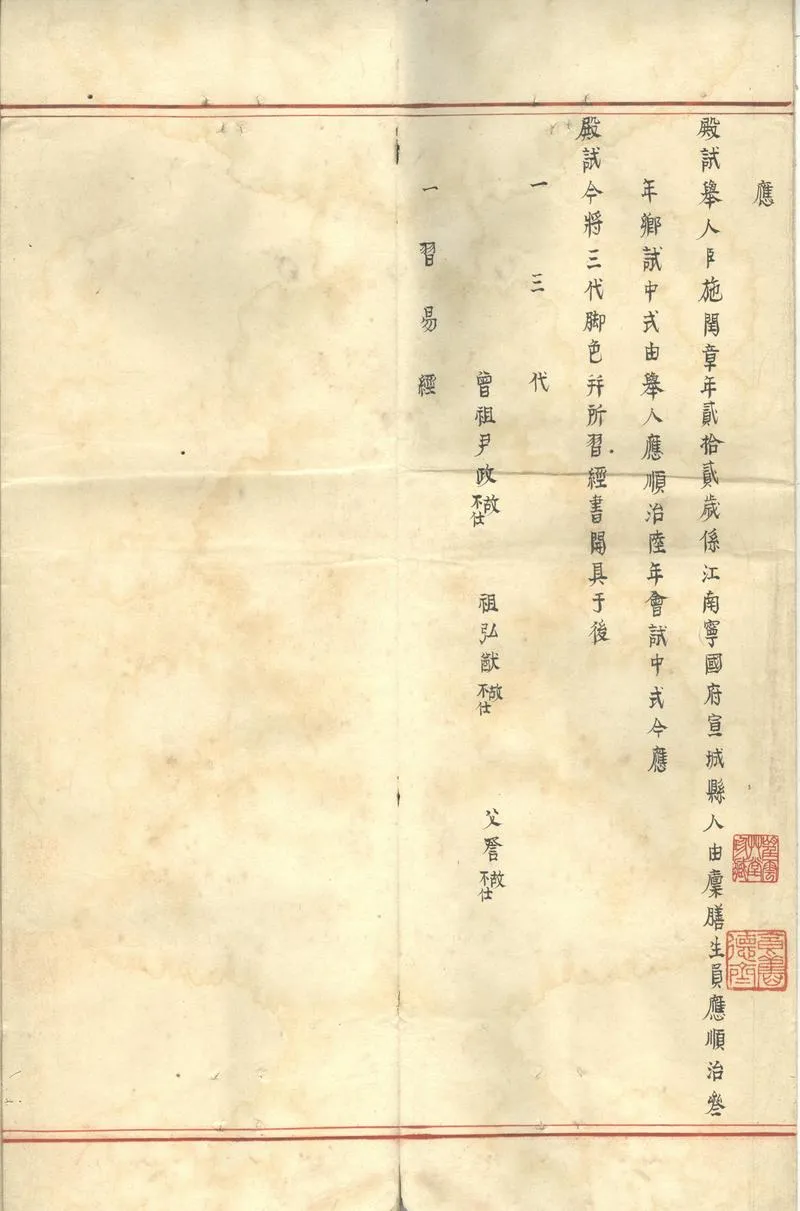 應
殿試舉人臣施閏章年貳拾貳歲係江南寧國府宣城縣人由廩膳生員應順治叄
年鄉試中式由舉人應順治陸年會試中式今應
殿試今將三代脚色并所習經書開具于後
一三代
曾祖尹政故不仕 祖弘猷故不仕 父詧故不仕
一習易經